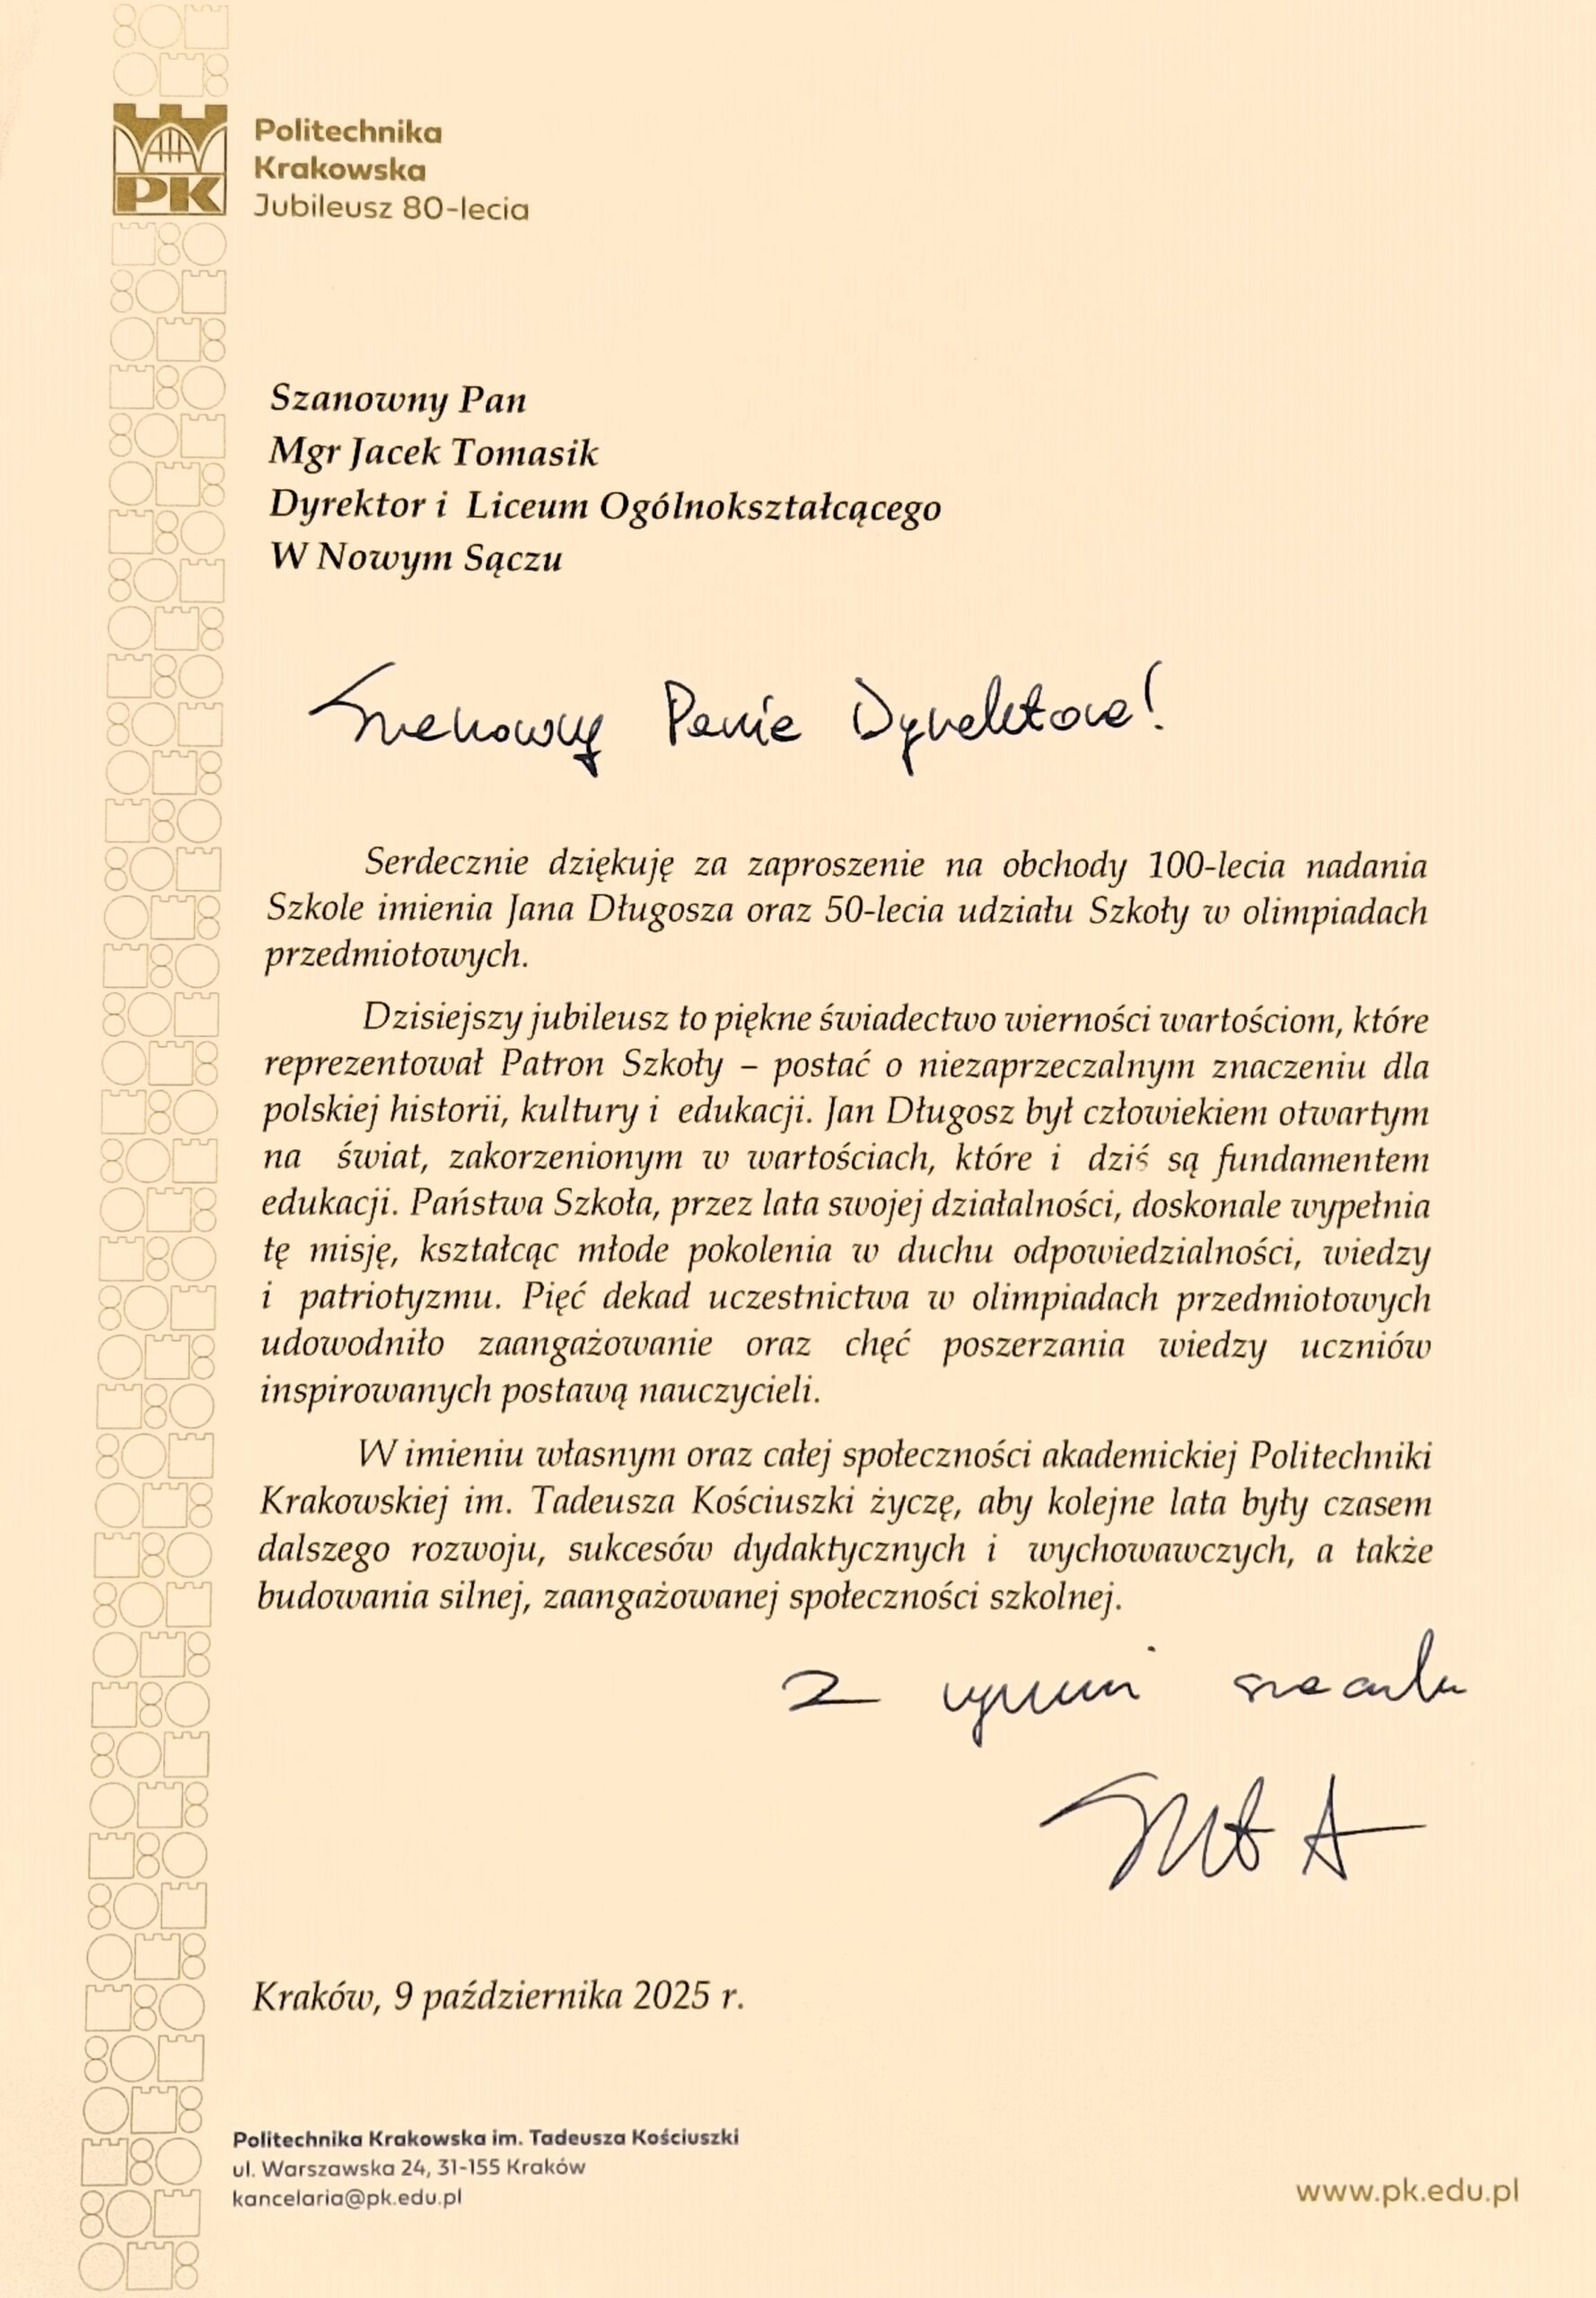 Politechnika
Krakowska
Jubileusz 80-lecia
PK
Szanowny Pan
Mgr Jacek Tomasik
Dyrektor i Liceum Ogólnokształcącego
W Nowym Sączu
Szanowny Panie Dyrektorze!
Serdecznie dziękuję za zaproszenie na obchody 100-lecia nadania
Szkole imienia Jana Długosza oraz 50-lecia udziału Szkoły w olimpiadach
przedmiotowych.
Dzisiejszy jubileusz to piękne świadectwo wierności wartościom, które
reprezentował Patron Szkoły – postać o niezaprzeczalnym znaczeniu dla
polskiej historii, kultury i edukacji. Jan Długosz był człowiekiem otwartym
na świat, zakorzenionym w wartościach, które i dziś są fundamentem
edukacji. Państwa Szkoła, przez lata swojej działalności, doskonale wypełnia
tę misję, kształcąc młode pokolenia w duchu odpowiedzialności, wiedzy
i patriotyzmu. Pięć dekad uczestnictwa w olimpiadach przedmiotowych
udowodniło zaangażowanie oraz chęć poszerzania wiedzy uczniów
inspirowanych postawą nauczycieli.
W imieniu własnym oraz całej społeczności akademickiej Politechniki
Krakowskiej im. Tadeusza Kościuszki życzę, aby kolejne lata były czasem
dalszego rozwoju, sukcesów dydaktycznych i wychowawczych, a także
budowania silnej, zaangażowanej społeczności szkolnej.
Z wyrazami szacunku
Kraków, 9 października 2025 r.
Politechnika Krakowska im. Tadeusza Kościuszki
ul. Warszawska 24, 31-155 Kraków
kancelaria@pk.edu.pl
www.pk.edu.pl